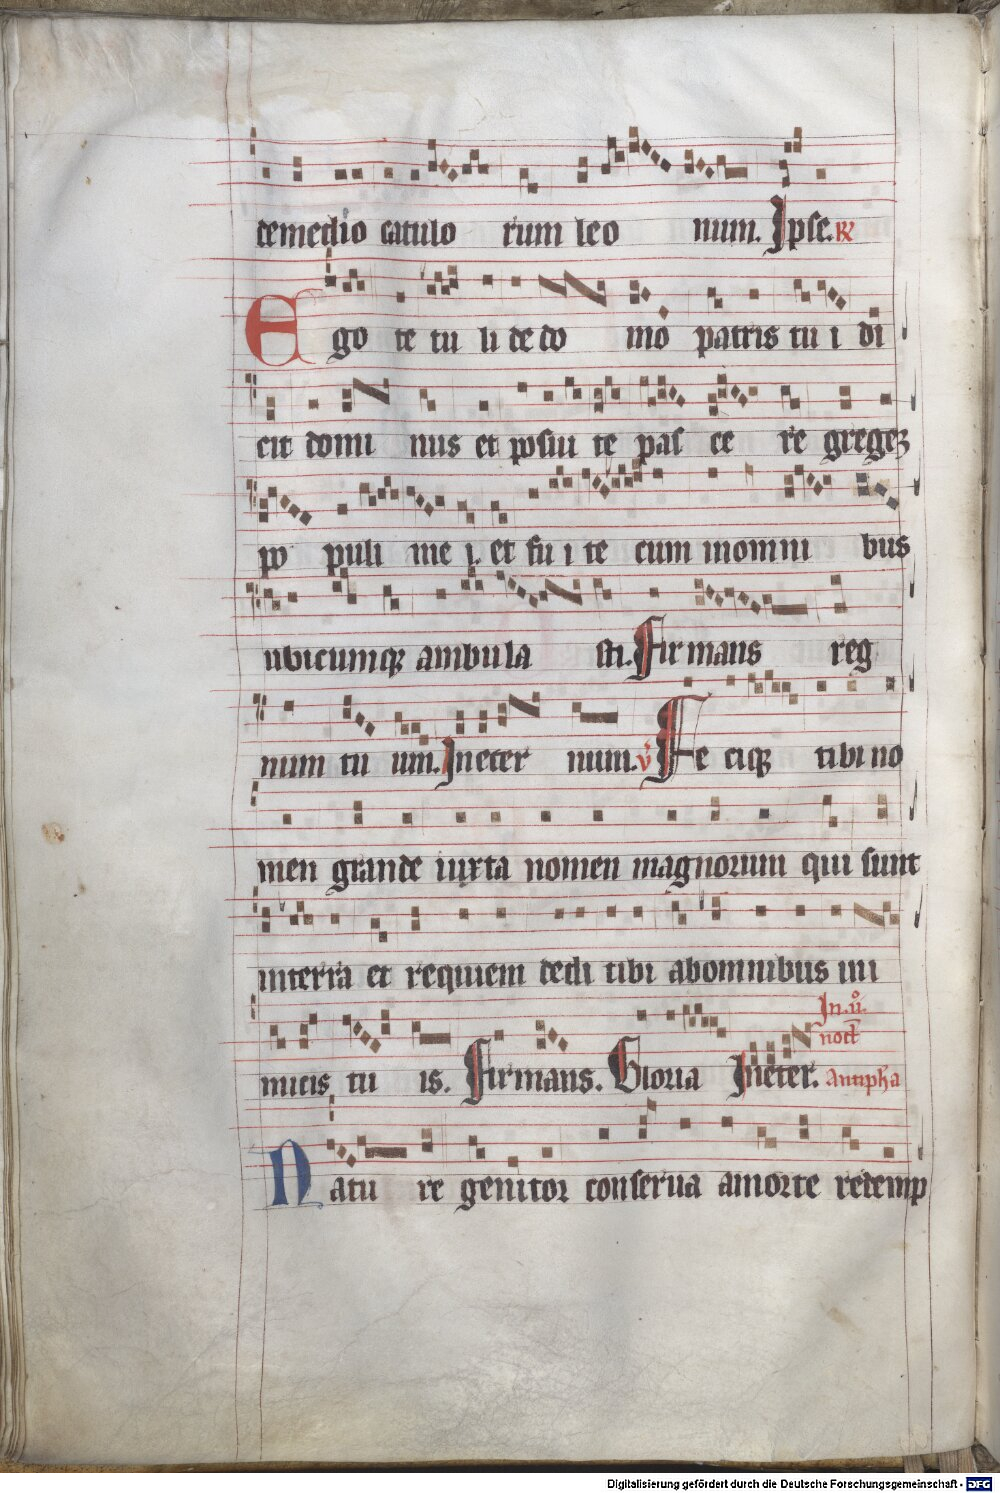 de medio catulo rum leo num. Ipse. ℟
Ego te tu li de do mo patris tu i di
cit domi nus et posui te pas ce re gregeꝫ
po puli me i. et fu i te cum in omni bus
ubicumqꝫ ambula sti. Firmans reg
num tu um. In eter num. v̊ Fe ciqꝫ tibi no
men grande iuxta nomen magnorum qui sunt
in terra et requiem dedi tibi ab omnibus ini
In .ij̊.
noct̄
micis tu is. Firmans. Gloria In eter. Antiph̄a
Natu re genitor conserua a morte redemp
Digitalisierung gefördert durch die Deutsche Forschungsgemeinschaft - DFG